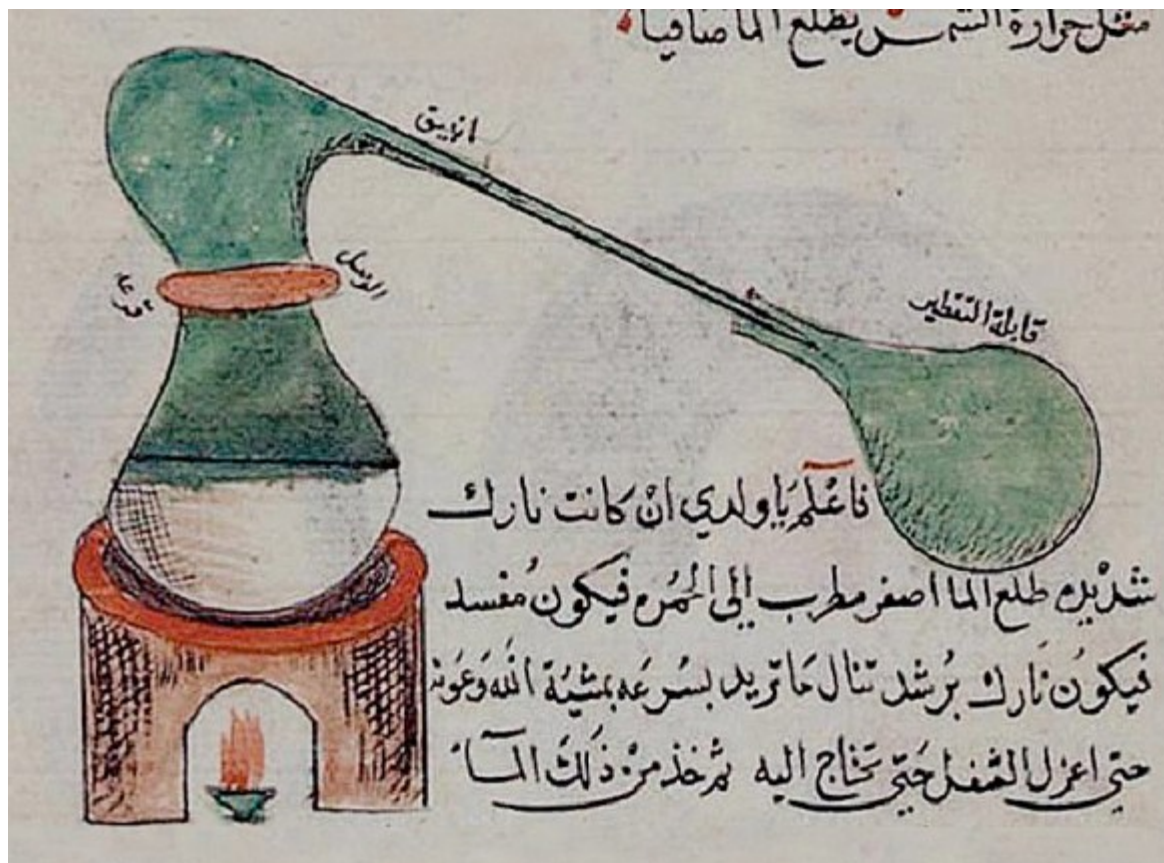 مثل حرارة الشمس يطلع الما صافيا
انبيق
الوصل
قرعة
قابلة التقطير
فاعْلم يَا ولدي انْ كانت نارك
شديده طلع الما اصفر مطرب الى الحمره فيكون مُفسد
فيكون نارك برُشد تنال ما تريد بسرعه بمشيّة الله وَعَونه
حتى اعزل الثفل حتى تحتاج اليه ثم خذ من ذلك المآء